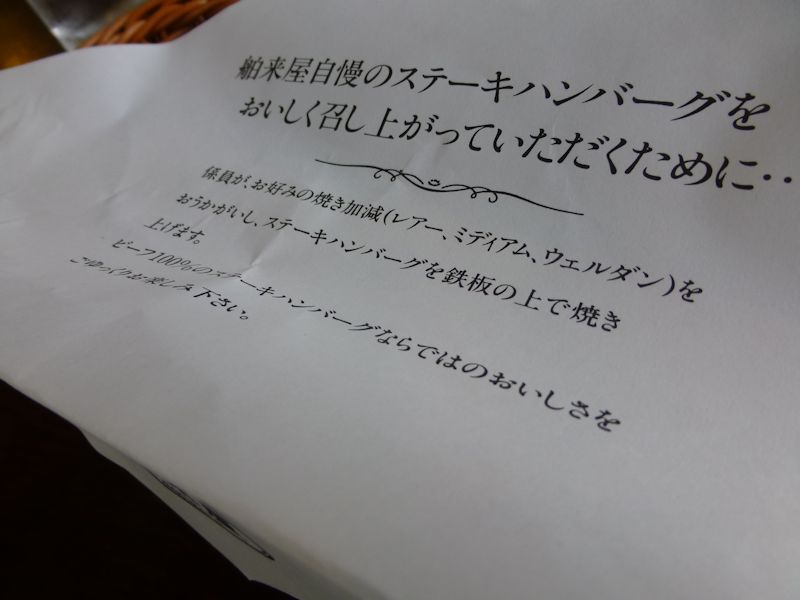 舶来屋自慢のステーキハンバーグを
おいしく召し上がっていただくために‥
係員が、お好みの焼き加減(レアー、ミディアム、ウェルダン)を
おうかがいし、ステーキハンバーグを鉄板の上で焼き
上げます。
ビーフ100%のステーキハンバーグならではのおいしさを
ごゆっくりお楽しみ下さい。